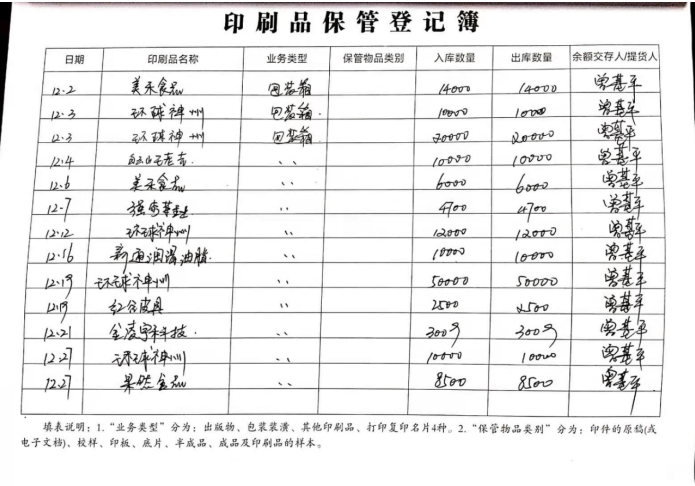 印刷品保管登记簿
日期 印刷品名称 业务类型 保管物品类别 入库数量 出库数量 余额交存人/提货人
12.2 美禾食品 包装箱 14000 14000 曾基平
12.3 环球神州 包装箱 10000 10000 曾基平
12.3 环球神州 包装箱 20000 20000 曾基平
12.4 〃 10000 10000 曾基平
12.6 美禾食品 〃 6000 6000 曾基平
12.7 〃 4700 4700 曾基平
12.12 环球神州 〃 12000 12000 曾基平
12.16 新通润滑油脂 〃 10000 10000 曾基平
12.19 环球神州 〃 50000 50000 曾基平
12.19 红谷皮具 〃 2500 2500 曾基平
12.21 金凌宇科技 〃 3009 3009 曾基平
12.27 环球神州 〃 10000 10000 曾基平
12.27 果然食品 〃 8500 8500 曾基平
填表说明：1.“业务类型”分为：出版物、包装装潢、其他印刷品、打印复印名片4种。2.“保管物品类别”分为：印件的原稿(或
电子文档)、校样、印板、底片、半成品、成品及印刷品的样本。